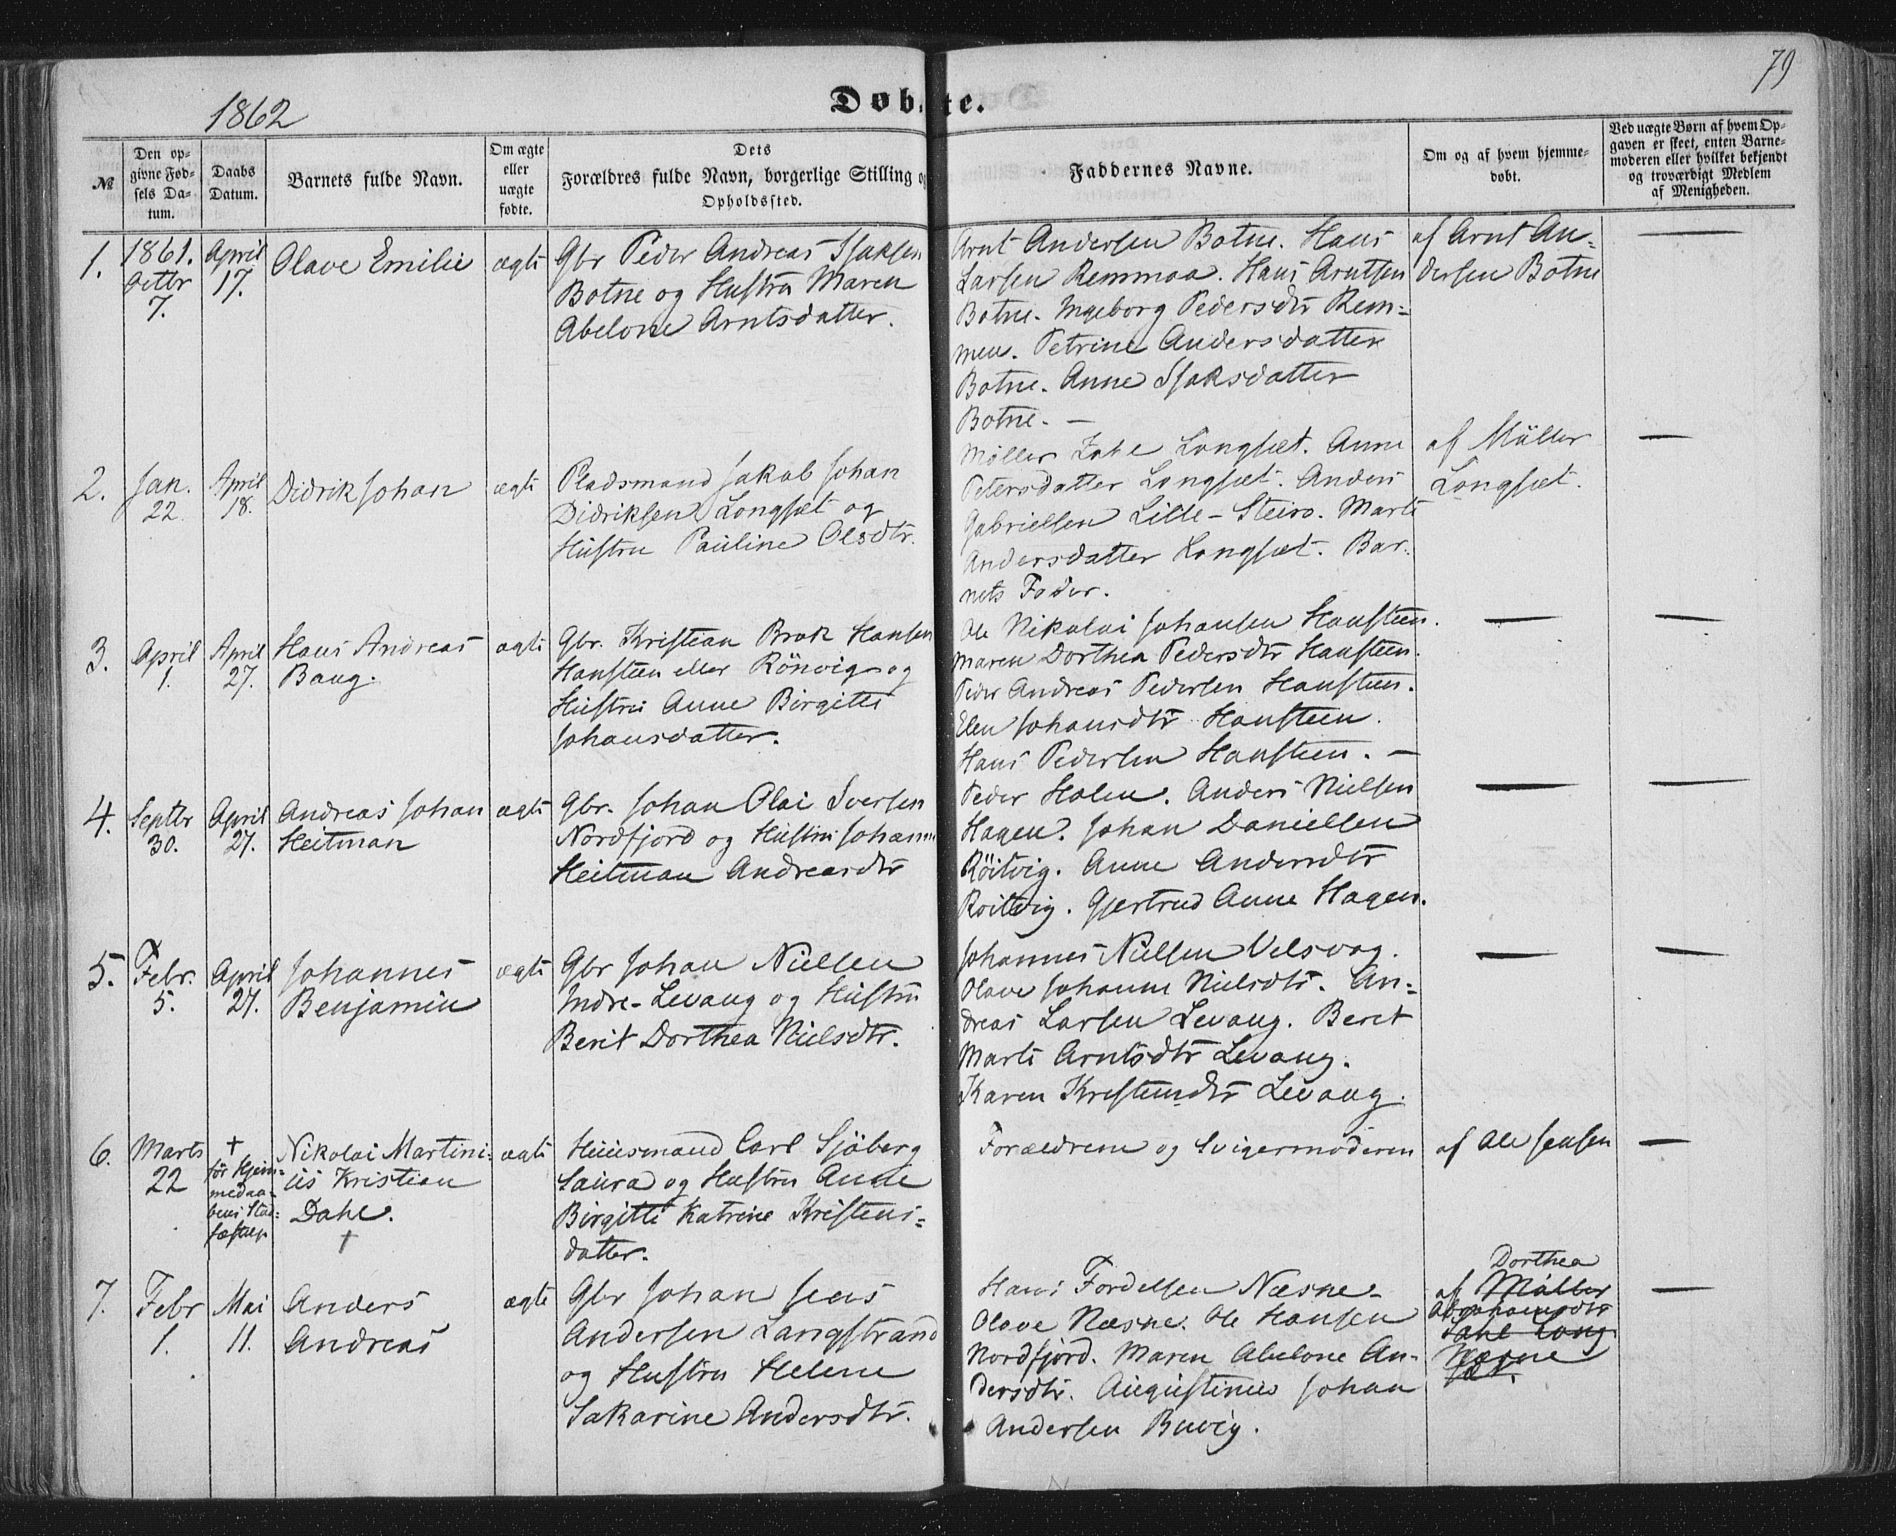 79
1862
Døbte.
№
Den op-
givne Fød-
sels Da-
tum.
Daabs
Datum.
Barnets fulde Navn.
Om ægte
eller
uægte
fødte.
Dets
Forældres fulde Navn, borgerlige Stilling og
Opholdssted.
Faddernes Navne.
Om og af hvem hjemme-
døbt.
Ved uægte Børn af hvem Op-
gaven er skeet, enten Barne-
moderen eller hvilket bekjendt
og troværdigt Medlem
af Menigheden.
1.
1861.
Octbr
7.
April
17.
Olave Emilie
ægte
Gbr Peder Andreas Isaksen
Botne og Hustru Maren
Abelone Arntsdatter.
Arnt Andersen Botne. Hans
Larsen Remmaa. Hans Arntsen
Botne. Ingeborg Pedersdtr Rem=
men. Petrine Andersdatter
Botne. Anne Isaksdatter
Botne. —
af Arnt An=
dersen Botne
2.
Jan.
22.
April
18.
Didrik Johan
ægte
Pladsmand Jakob Johan
Didriksen Longset og
Hustru Pauline Olsdtr.
Møller Dahl Longset. Anne
Petersdatter Longset. Anders
Gabrielsen Lille-Steiro. Marte
Andersdatter Longset. Bar-
nets Fader.
af Müller
Longset.
3.
April
1.
April
27.
Hans Andreas
Baug.
ægte
Gbr. Kristian Brok Hansen
Hansteen eller Rönvig og
Hustru Anne Birgitte
Johansdatter.
Ole Nikolai Johansen Hansteen.
Maren Dorthea Pedersdtr Hansteen.
Peder Andreas Pedersen Hansteen.
Elen Johansdtr Hansteen.
Hans Pedersen Hansteen. —
4.
Septbr
30.
April
27.
Andreas Johan
Heitman
ægte
Gbr. Johan Olai Iversen
Nordfjord og Hustru Johanne
Heitman Andreasdtr
Peder Holen. Anders Nielsen
Hagen. Johan Danielsen
Röitvig. Anne Andersdtr
Roitvig. Gjertrud Anne Hagen.
5.
Febr.
5.
April
27.
Johannes
Benjamin
ægte
Gbr Johan Nielsen
Indre-Levang og Hustru
Berit Dorthea Nielsdtr.
Johannes Nielsen Velsvag.
Olave Johanne Nielsdtr. An=
dreas Larsen Levang. Beret
Marte Arntsdtr Levang.
Karen Kristensdtr Levang.
6.
Marts
22
+
før Hjem=
medaa-
bens Stad=
fæstelse
Nikolai Martini=
us Kristian
Dahl.
+
ægte
Huusmand Carl Sjöberg
Saura og Hustru Anne
Birgitte Katrine Kristens=
datter.
Forældrene og Svigermoderen
af Ole Jensen
7.
Febr
1.
Mai
11.
Anders
Andreas
ægte
Gbr Johan Jens
Andersen Langstrand
og Hustru Helene
Sakarine Andersdtr.
Hans Fordelsen Næsne-
Olave Næsne. Ole Hansen
Nordfjord. Maren Abelone An-
dersdtr. Augustinus Johan
Andersen Buvig.
Dorthea
af Müller
Abrahamsdtr
Dahl Long
Næsne
set.